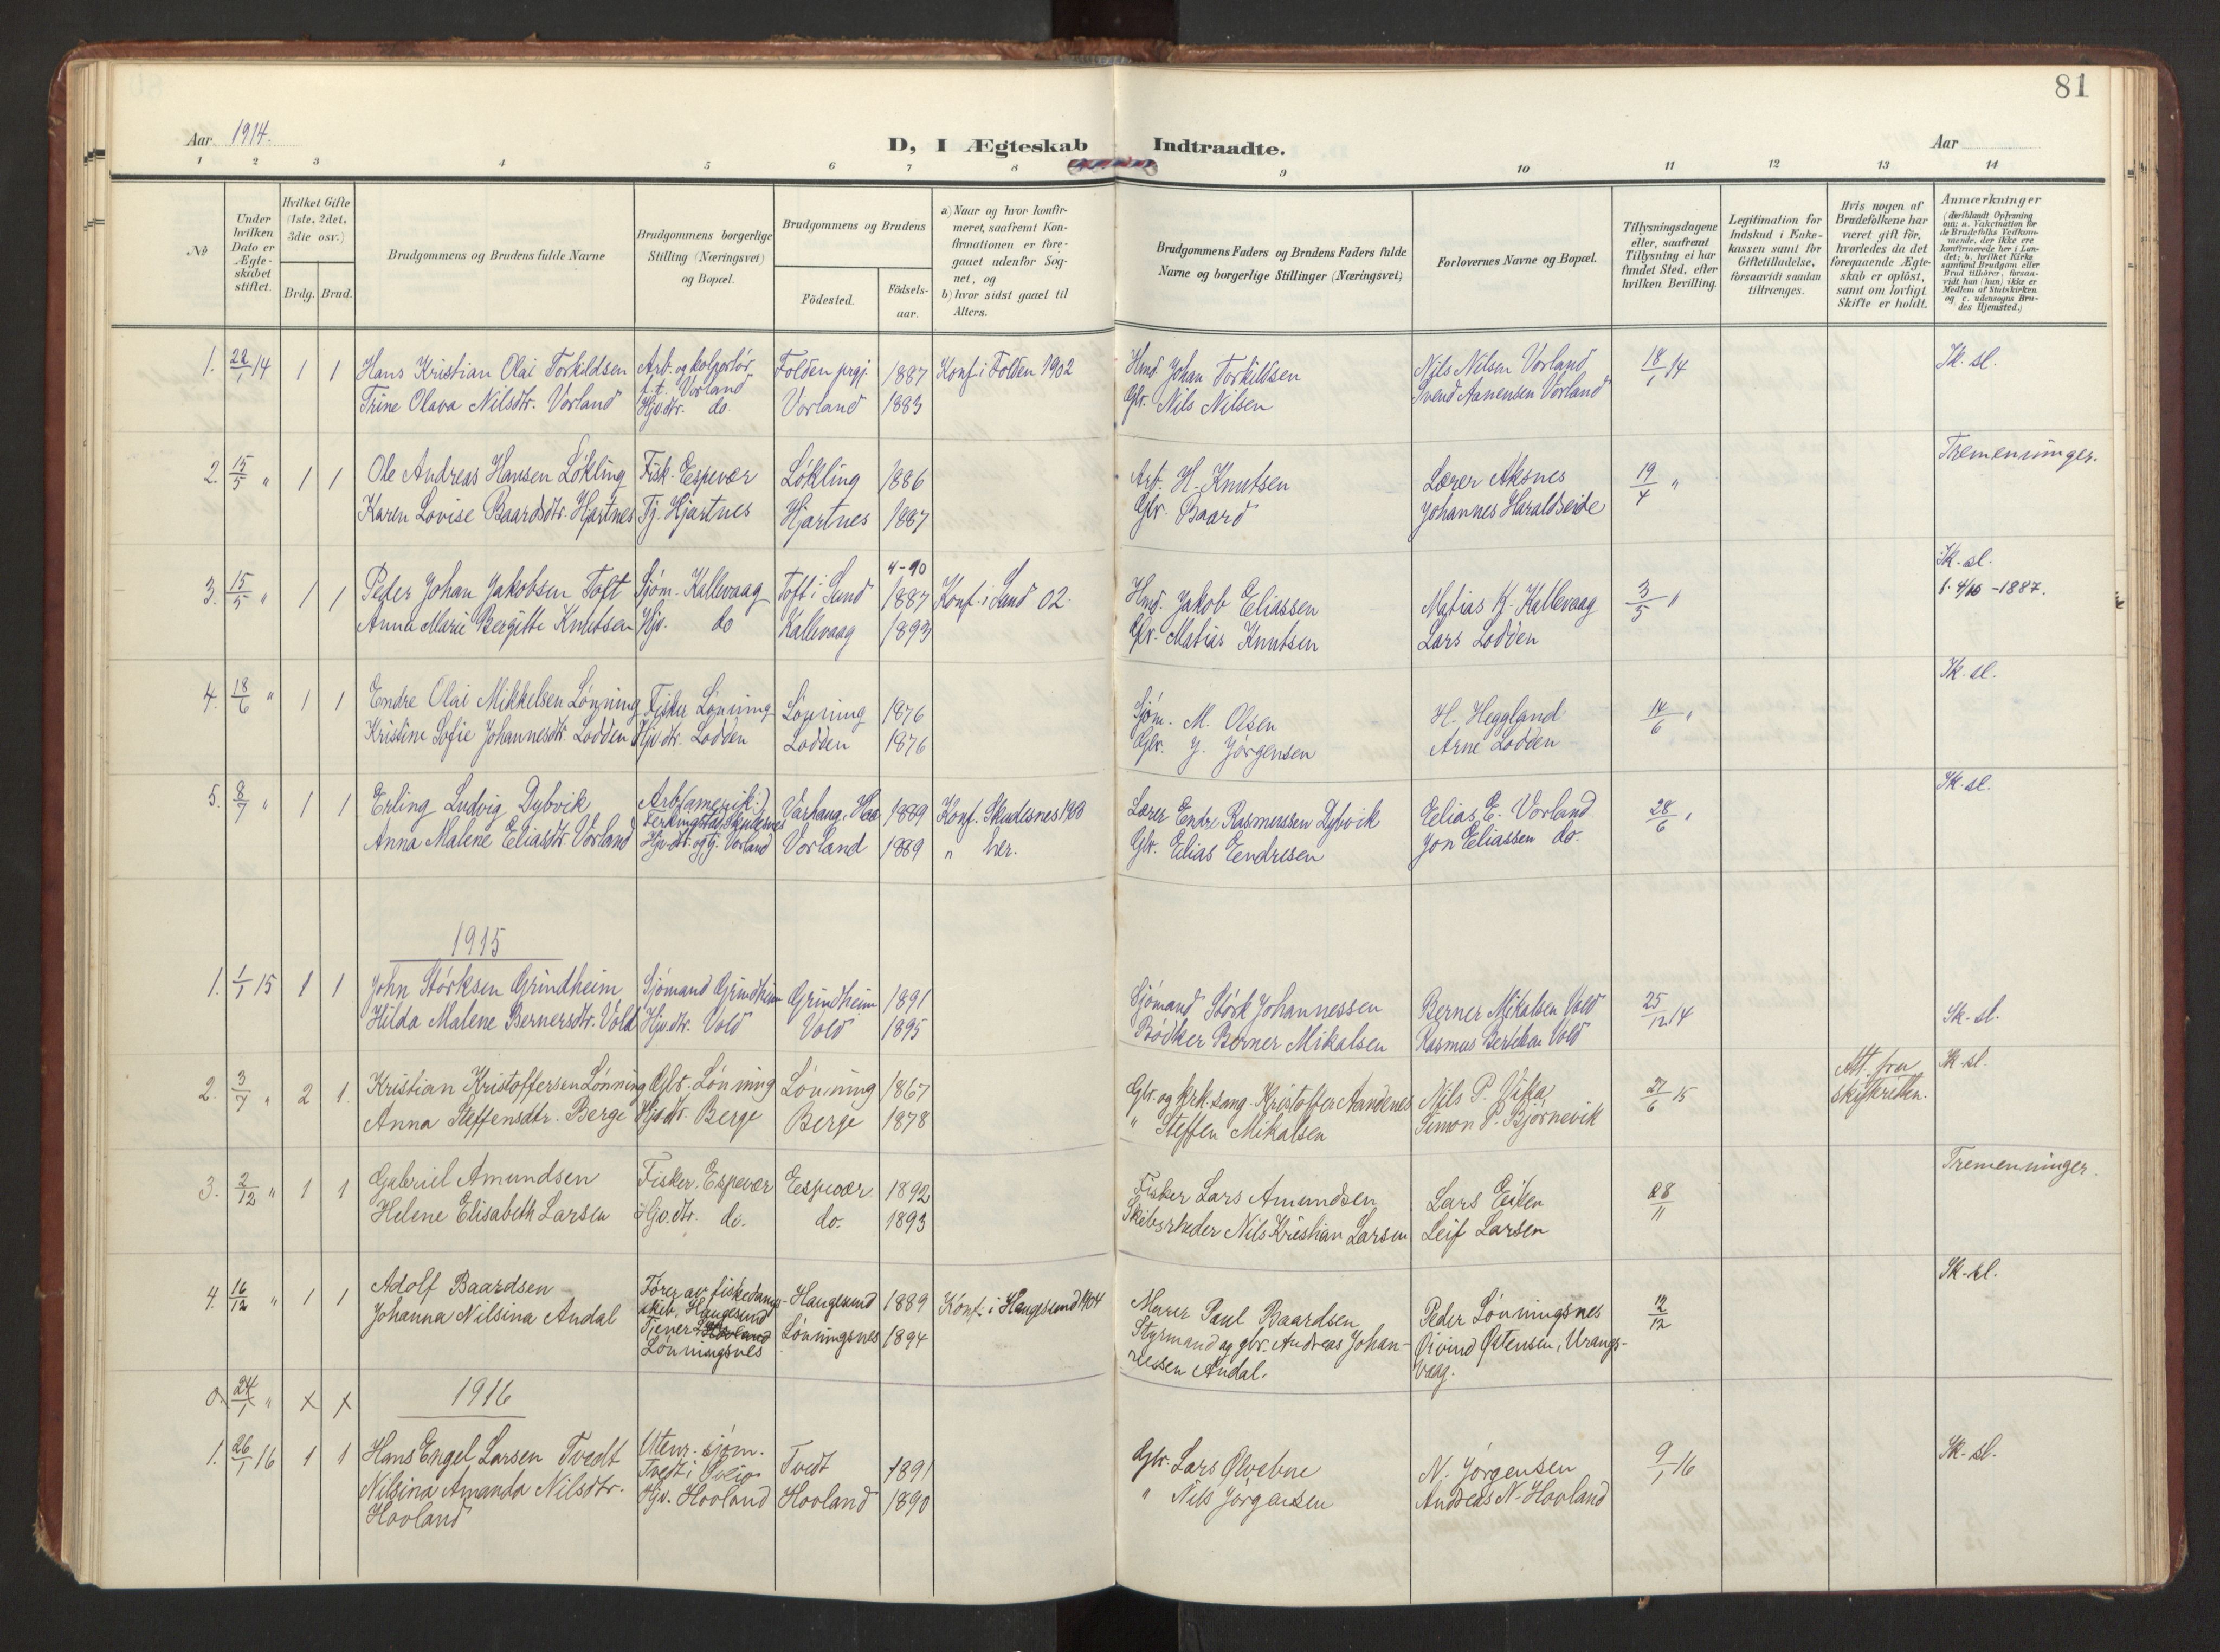 81
Aar 1914.
D, I Ægteskab Indtraadte.
Aar
1 2 3 4 5 6 7 8 9 10 11 12 13 14
No
Under hvilken Dato er Ægteskabet stiftet.
Hvilket Gifte (1ste, 2det, 3die osv.)
Brdg. Brud.
Brudgommens og Brudens fulde Navne
Brudgommens borgerlige Stilling (Næringsvei) og Bopæl.
Brudgommens og Brudens
Födested. Födsels-aar.
a) Naar og hvor konfirmeret, saafremt Konfirmationen er foregaaet udenfor Sognet, og
b) hvor sidst gaaet til Alters.
Brudgommens Faders og Brudens Faders fulde Navne og borgerlige Stillinger (Næringsvei)
Forlovernes Navne og Bopæl.
Tillysningsdagene eller, saafremt Tillysning ei har fundet Sted, efter hvilken Bevilling.
Legitimation for Indskud i Enkekassen samt for Giftetilladelse, forsaavidt saadan tiltrænges.
Hvis nogen af Brudefolkene har været gift för, hvorledes da det foregaaende Ægteskab er oplöst, samt om lovligt Skifte er holdt.
Anmærkninger
(deriblandt Oplysning om: a. Vakcination for de Brudefolks Vedkommende, der ikke ere konfirmerede her i Landet; b. hvilket Kirkesamfund Brudgom eller Brud tilhörer, forsaavidt han (hun) ikke er Medlem af Statskirken og c. udensogns Brudes Hjemsted.)
1. 22/1 14 1 1 Hans Kristian Olai Torkildsen Arb. og kolportör, Folden prgj 1887 Konf. i Folden 1902 Hmd. Johan Torkildsen Nils Nilsen Vorland 18/1 14 Ik. sl.
t.t. Vorland
Trine Olava Nilsdtr. Vorland Hjv.dtr. do. Vorland 1883 Gbr. Nils Nilsen Svend Aanensen Vorland
2. 15/5 " 1 1 Ole Andreas Hansen Lökling Fisk. Espevær Lökling 1886 Arb. H. Knutsen Lærer Aksnes 19/4 " Tremenninger.
Karen Lovise Baardsdtr. Hjartnes Tj. Hjartnes Hjartnes 1887 Gbr. Baard Johannes Haraldseide
4-90
3. 15/5 " 1 1 Peder Johan Jakobsen Toft Sjöm. Kallevaag Toft i Sund 1887 Konf. i Sund 02. Hmd. Jakob Eliassen Matias K. Kallevaag 3/5 " Ik. sl.
f. 4/10 - 1887.
Anna Marie Bergitte Knutsen Hjv. do Kallevaag 1893 Gbr. Matias Knutsen Lars Lodden
4. 18/6 " 1 1 Endre Olai Mikkelsen Lönning Fisker Lönning Lönning 1876 Sjöm. M. Olsen H. Heggland 14/6 " Ik. sl.
Kristine Sofie Johannesdtr. Lodden Hjv.dtr. Lodden Lodden 1876 Gbr. J. Jörgensen Arne Lodden
5. 8/7 " 1 1 Erling Ludvig Dybvik Arb. (amerik.) Varhaug, Haa 1889 Konf. Skudesnes 1903 Lærer Endre Rasmussen Dybvik Elias E. Vorland 28/6 " Ik. sl.
Ferkingstad, Skudesnes
Anna Malene Eliasdtr. Vorland Hjv.dtr. og tj. Vorland Vorland 1889 " her. Gbr. Elias Endresen Jon Eliassen do.
1915
1. 1/1 15 1 1 John Störksen Grindheim Sjömand Grindheim Grindheim 1891 Sjömand Störk Johannessen Berner Mikalsen Vold 25/12 14 Ik. sl.
Hilda Malene Bernersdtr. Vold Hjv.dtr. Vold Vold 1895 Bödker Berner Mikalsen Rasmus Vold
2. 3/7 " 2 1 Kristian Kristoffersen Lönning Gbr. Lönning Lönning 1867 Gbr. og krk.sang. Kristoffer Aandenes Nils P. Vika 27/6 15 Att. fra skifteretten. Ik. sl.
Anna Steffensdtr. Berge Hjv.dtr. Berge Berge 1878 " Steffen Mikalsen Simon P. Björnevik
3. 2/12 " 1 1 Gabriel Amundsen Fisker. Espevær Espevær 1892 Fisker Lars Amundsen Lars Eiken 28/11 Tremenninger.
Helene Elisabeth Larsen Hjv.dtr. do. do. 1893 Skibsrheder Nils Kristian Larsen Leif Larsen
4. 16/12 " 1 1 Adolf Baardsen Förer av fiskedampskib. Haugesund Haugesund 1889 Konf. i Haugesund 1904 Murer Paul Baardsen Peder Lönningsnes 12/12 Ik. sl.
Johanna Nilsina Andal Tjener Lönningsnes Lönningsnes 1894 Styrmand og gbr. Andreas Johannessen Andal. Öivind Östensen, Urangsvaag.
0. 24/1 " x x
1916
1. 26/1 16 1 1 Hans Engel Larsen Tvedt Utenr. sjöm. Tvedt 1891 Gbr. Lars Ölvebne N. Jörgensen 9/1 16 Ik. sl.
Tvedt i Ölve
Nilsina Amanda Nilsdtr. Hjv. Hovland Hovland 1890 " Nils Jörgensen Andreas N. Hovland
Hovland